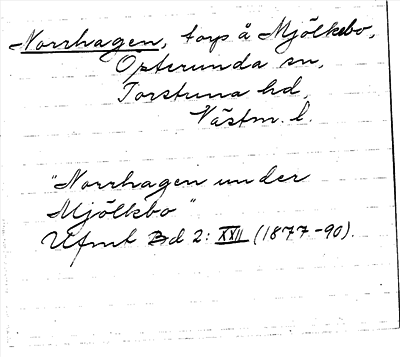 Norrhagen, torp å Mjölkebo,
Österunda sn,
Torstuna hd,
Västm. l.
"Norrhagen under
Mjölkbo"
Ufmb Bd 2: XXII (1877-90).